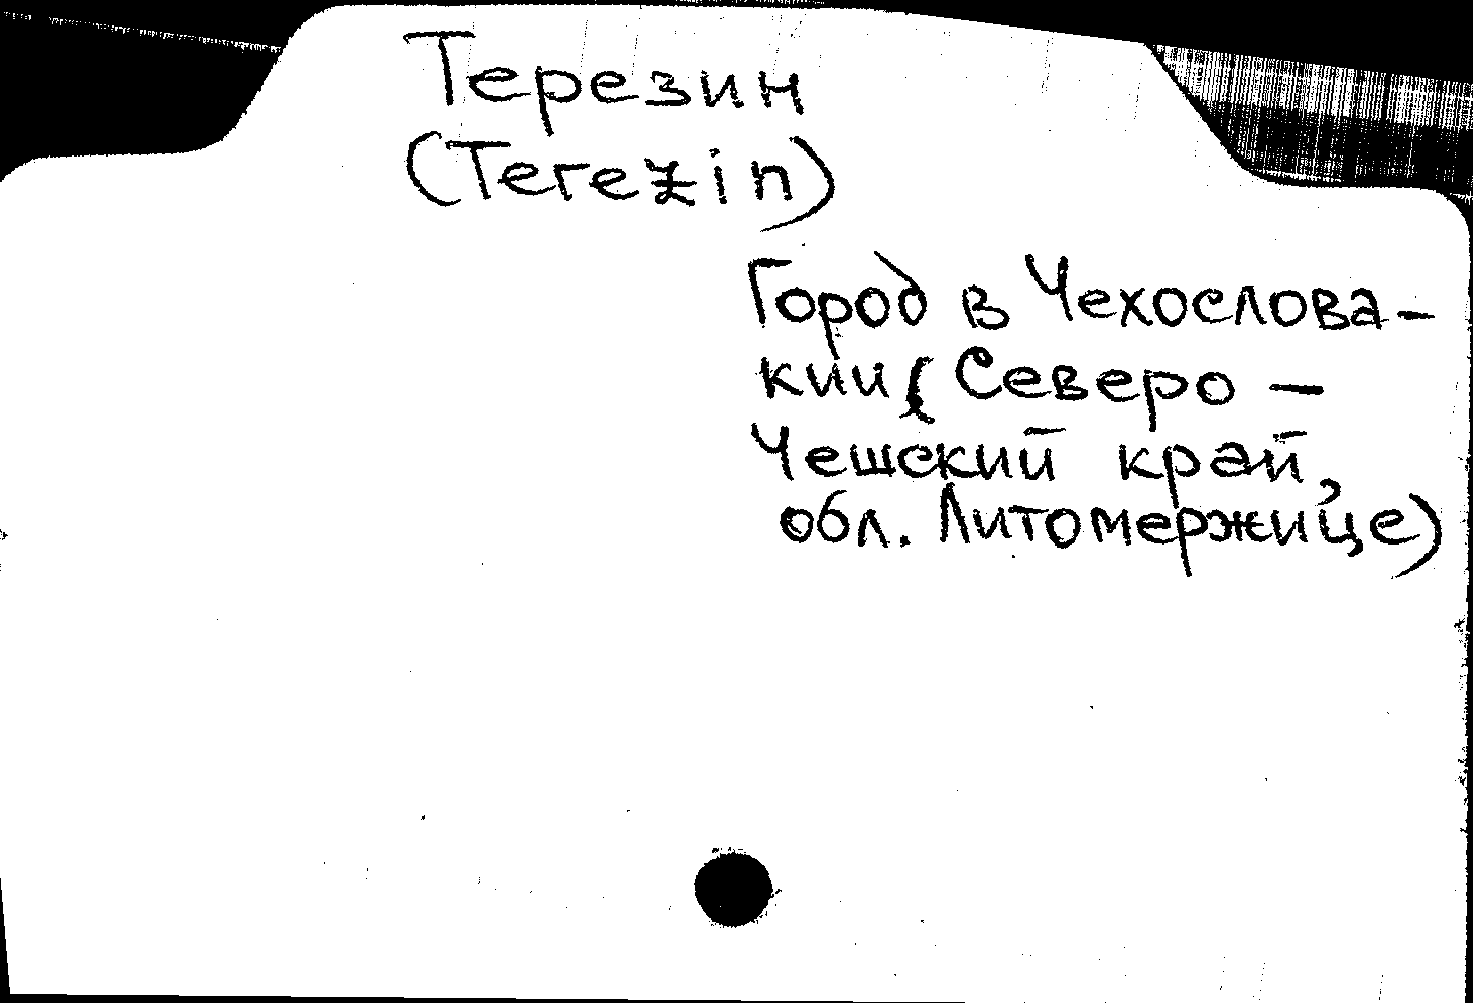 Терезин
(Terezin)
Город в Чехослова-
кии (Северо-
Чешский край,
обл. Литомержице)